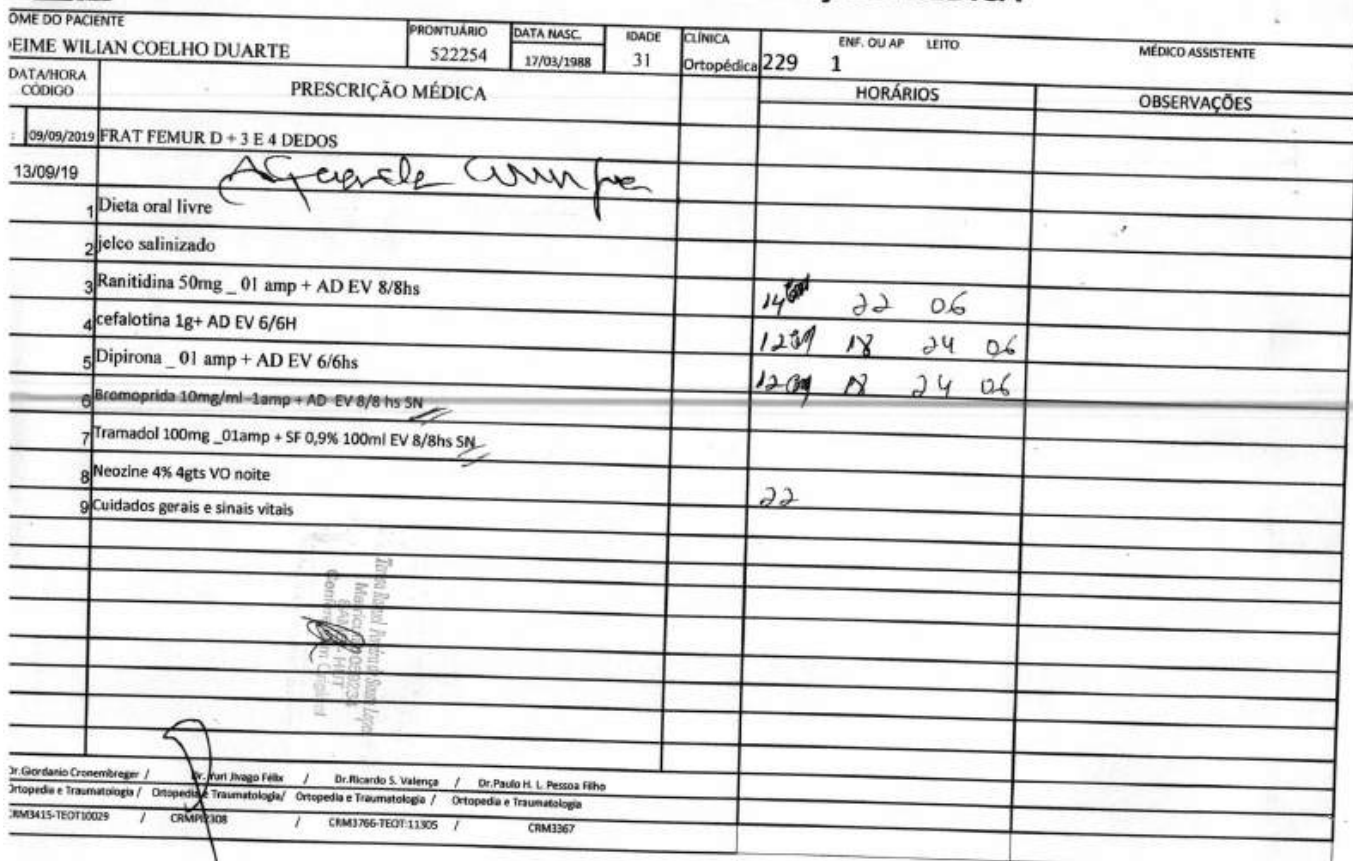 OME DO PACIENTE PRONTUÁRIO DATA NASC. IDADE CLÍNICA ENF. OU AP LEITO MÉDICO ASSISTENTE
EIME WILIAN COELHO DUARTE 522254 17/03/1988 31 Ortopédica 229 1
DATA/HORA CÓDIGO PRESCRIÇÃO MÉDICA HORÁRIOS OBSERVAÇÕES
09/09/2019 FRAT FEMUR D + 3 E 4 DEDOS
13/09/19
1 Dieta oral livre
2 jelco salinizado
3 Ranitidina 50mg _ 01 amp + AD EV 8/8hs 14 22 06
4 cefalotina 1g+ AD EV 6/6H 12 18 24 06
5 Dipirona _ 01 amp + AD EV 6/6hs 12 18 24 06
6 Bromoprida 10mg/ml -1amp + AD EV 8/8 hs SN
7 Tramadol 100mg _01amp + SF 0,9% 100ml EV 8/8hs SN
8 Neozine 4% 4gts VO noite 22
9 Cuidados gerais e sinais vitais
Dr.Giordanio Cronembreger / Dr. Yuri Jivago Félix / Dr.Ricardo S. Valença / Dr.Paulo H. L. Pessoa Filho
Ortopedia e Traumatologia / Ortopedia e Traumatologia/ Ortopedia e Traumatologia / Ortopedia e Traumatologia
CRM3415-TEOT10029 / CRMPI2308 / CRM3766-TEOT:11305 / CRM3367